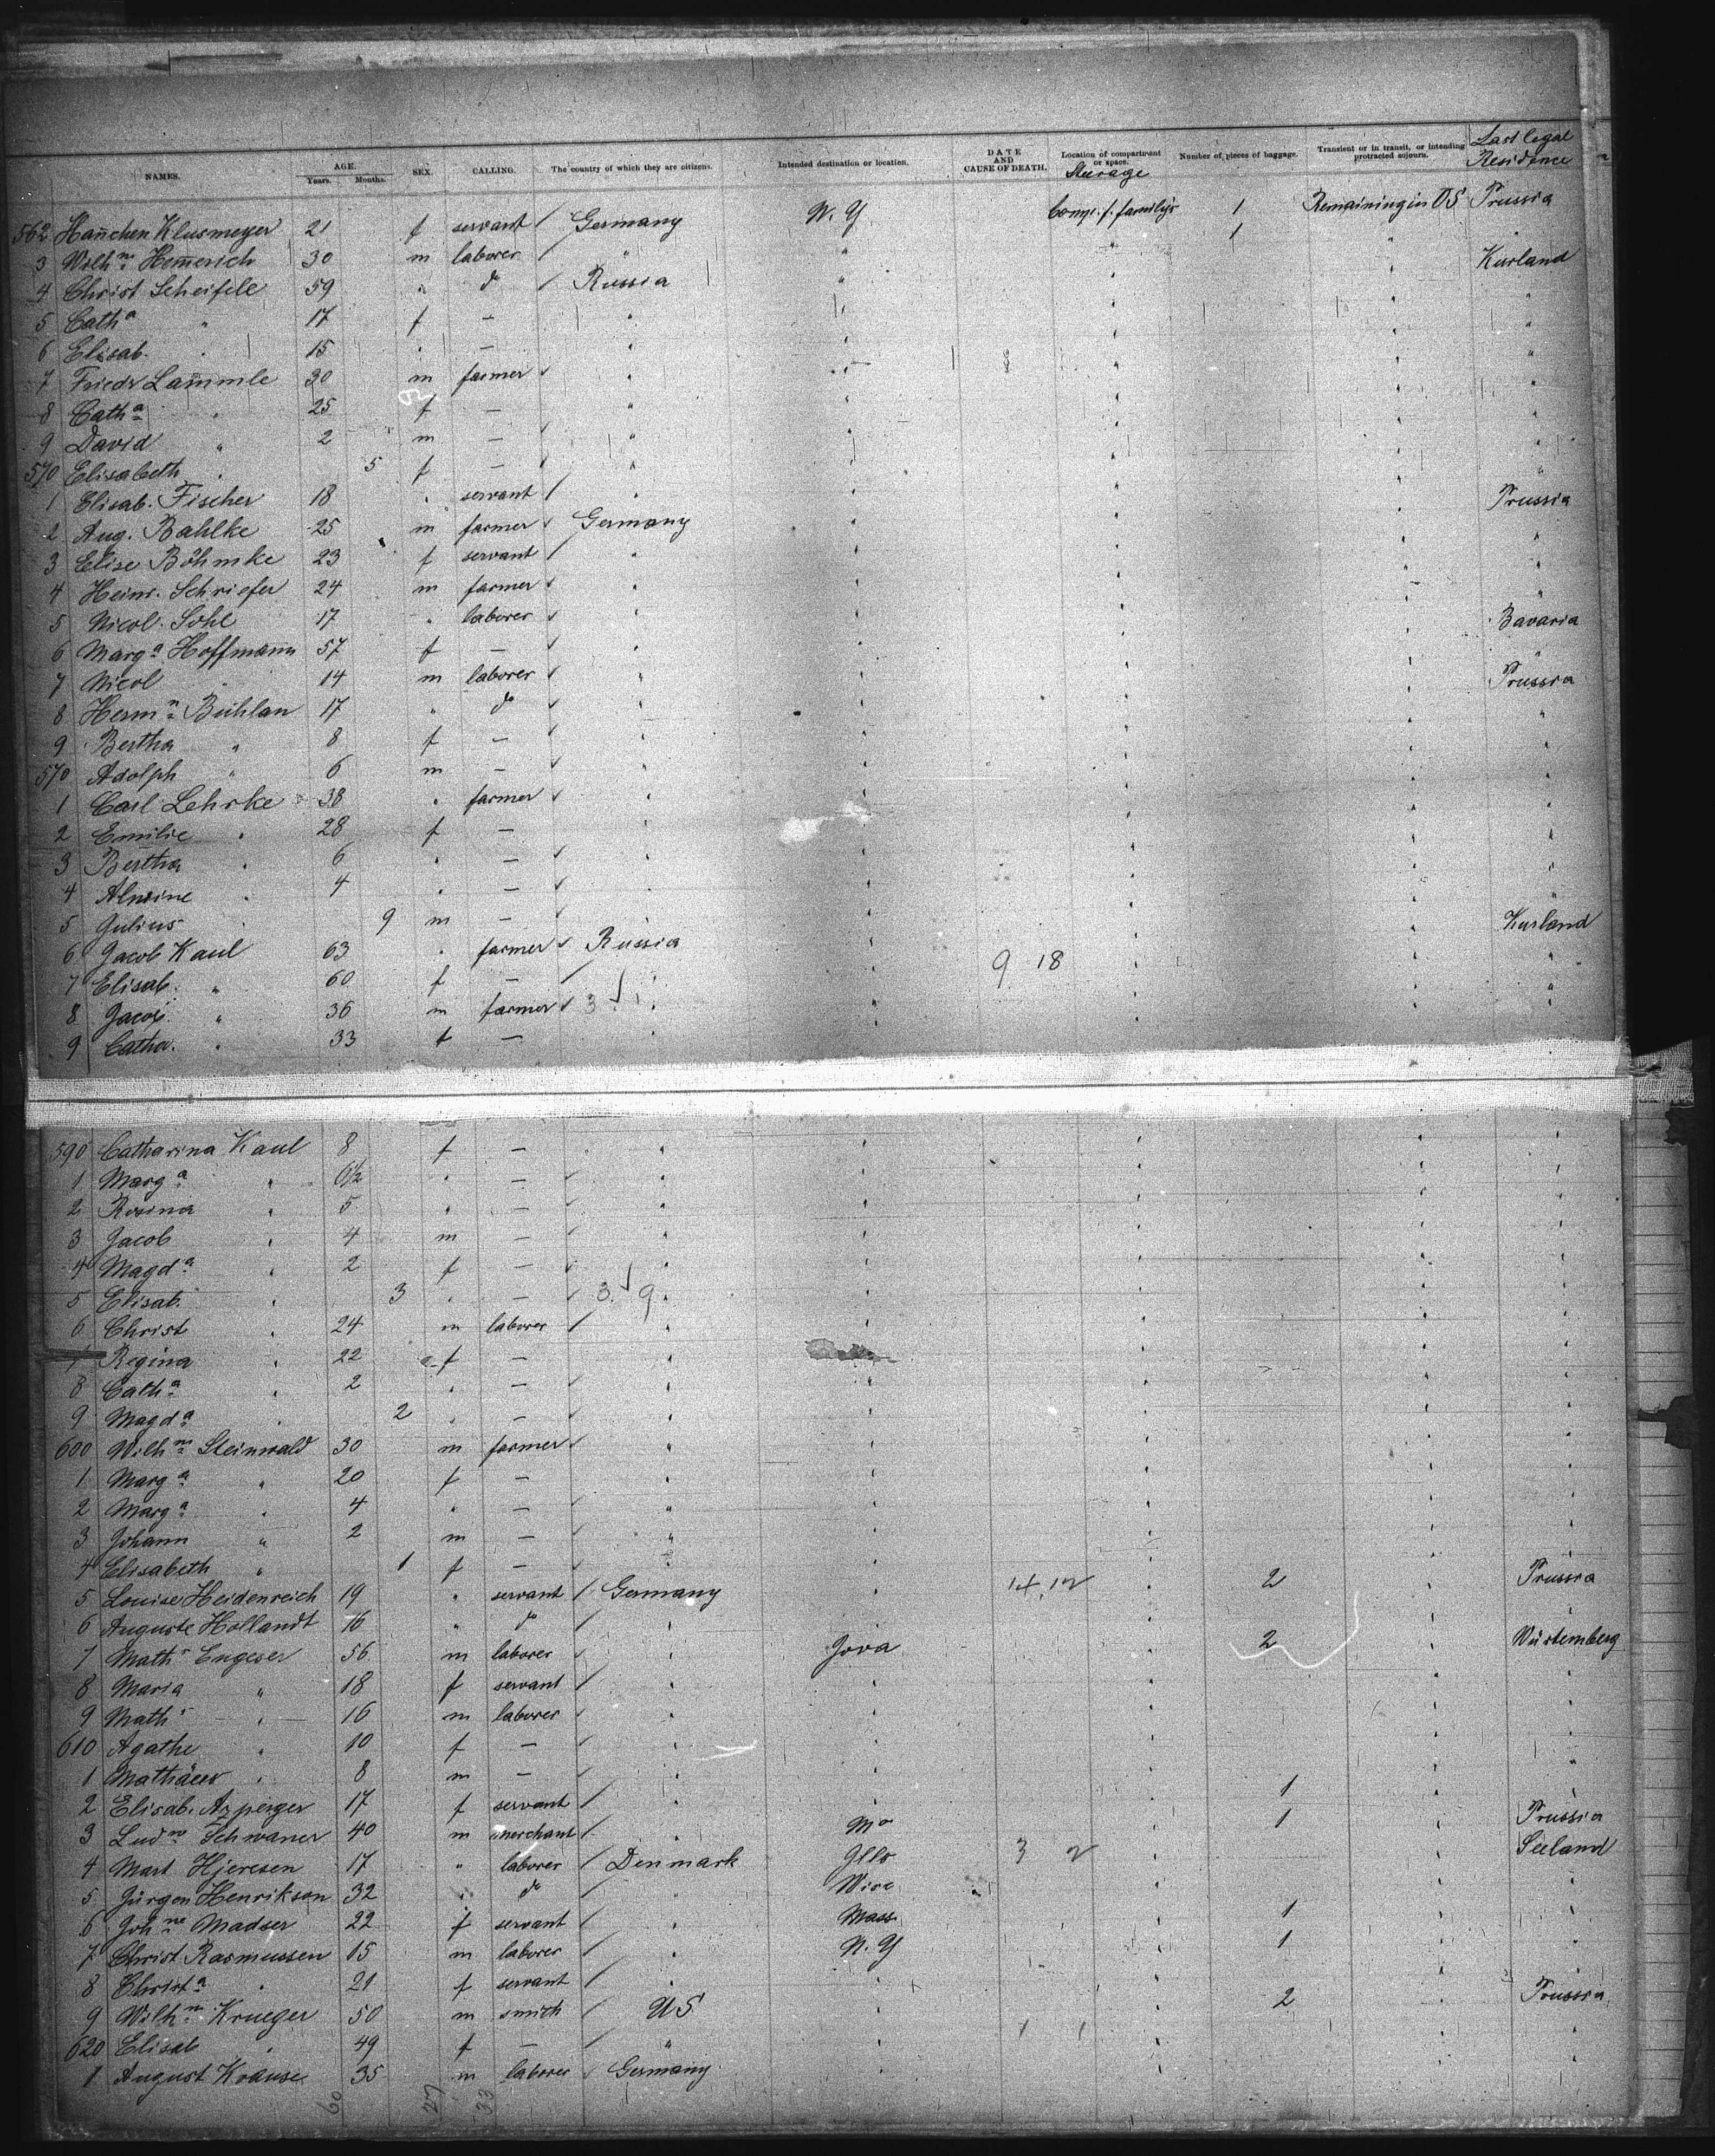 NAMES. AGE. Years. Months. SEX. CALLING. The country of which they are citizens. Intended destination or location. DATE AND CAUSE OF DEATH. Location of compartment or space. Steerage Number of pieces of baggage. Transient or in transit, or intending protracted sojourn. Last legal Residence
562 Hanchen Klusmeyer 21 f servant / Germany N. Y Comp. f. family's 1 Remaining in US Prussia
3 Wilhm Hemerich 30 m laborer / " " " 1 " "
4 Christ Scheifele 59 " do / Russia " " " Kurland
5 Catha " 17 f — " " " " "
6 Elisab. " 15 " — " " " " "
7 Friedr Lammle 30 m farmer ✓ " " " " "
8 Catha " 25 f — " " " " "
9 David " 2 m — ✓ " " " " "
570 Elisabeth " 5 f — ✓ " " " " "
1 Elisab. Fischer 18 " servant / " " " " "
2 Aug. Bahlke 25 m farmer ✓ Germany " " " Prussia
3 Elise Böhmke 23 f servant / " " " " "
4 Heinr. Schriefer 24 m farmer ✓ " " " " "
5 Nicol. Sohl 17 " laborer ✓ " " " " "
6 Marga Hoffmann 57 f — ✓ " " " " Bavaria
7 Nicol " 14 m laborer ✓ " " " " "
8 Hermn Buhlan 17 " do ✓ " " " " Prussia
9 Bertha " 8 f — ✓ " " " " "
570 Adolph " 6 m — ✓ " " " " "
1 Carl Lehrke 38 " farmer ✓ " " " " "
2 Emilie " 28 f — " " " " "
3 Bertha " 6 " — ✓ " " " " "
4 Alwine " 4 " — ✓ " " " " "
5 Julius " 9 m — ✓ " " " " "
6 Jacob Kaul 63 " farmer ✓ Russia " " " Kurland
7 Elisab. " 60 f — / " " 9 18 " " "
8 Jacob " 36 m farmer ✓ 3 " " " " "
9 Catha. " 33 f — " " " " "
590 Catharina Kaul 8 f — " " " " "
1 Marga " 6½ " — ✓ " " " " "
2 Rosina " 5 " — ✓ " " " " "
3 Jacob " 4 m — ✓ " " " " "
4 Magda " 2 f — ✓ " " " " "
5 Elisab. " 3 " — ✓ 3 9 " " " " "
6 Christ " 24 m laborer / " " " " "
7 Regina " 22 f — " " " " "
8 Catha " 2 " — ✓ " " " " "
9 Magda " 2 " — ✓ " " " " "
600 Wilhm Steinwald 30 m farmer ✓ " " " " "
1 Marga " 20 f — " " " " "
2 Marga " 4 " — ✓ " " " " "
3 Johann " 2 m — ✓ " " " " "
4 Elisabeth " 1 f — ✓ " " " " "
5 Louise Heidenreich 19 " servant / Germany " 14 12 " 2 " Prussia
6 Auguste Hollandt 16 " do / " " " " "
7 Maths Engeser 56 m laborer ✓ " Jova " 2 " Würtemberg
8 Maria " 18 f servant / " " " " "
9 Maths " 16 m laborer ✓ " " " " "
610 Agathe " 10 f — ✓ " " " " "
1 Mathäus " 8 m — ✓ " " " " "
2 Elisab. Azperger 17 f servant / " " " 1 " "
3 Ludw Schwaner 40 m merchant / " Mo " 1 " Prussia
4 Mart Hjeresen 17 " laborer / Denmark Ills 3 2 " " Seeland
5 Jürgen Henrikson 32 " do / " " " " "
6 Johne Madser 22 f servant / " Mass " 1 " "
7 Christ Rasmussen 15 m laborer / " N. Y " 1 " "
8 Christa " 21 f servant / " " " " "
9 Wilhm Krueger 50 m smith / US " " 2 " Prussia
620 Elisab " 49 f — / " " 1 1 " " "
1 August Krause 35 m laborer ✓ Germany " " " "
60 27 33